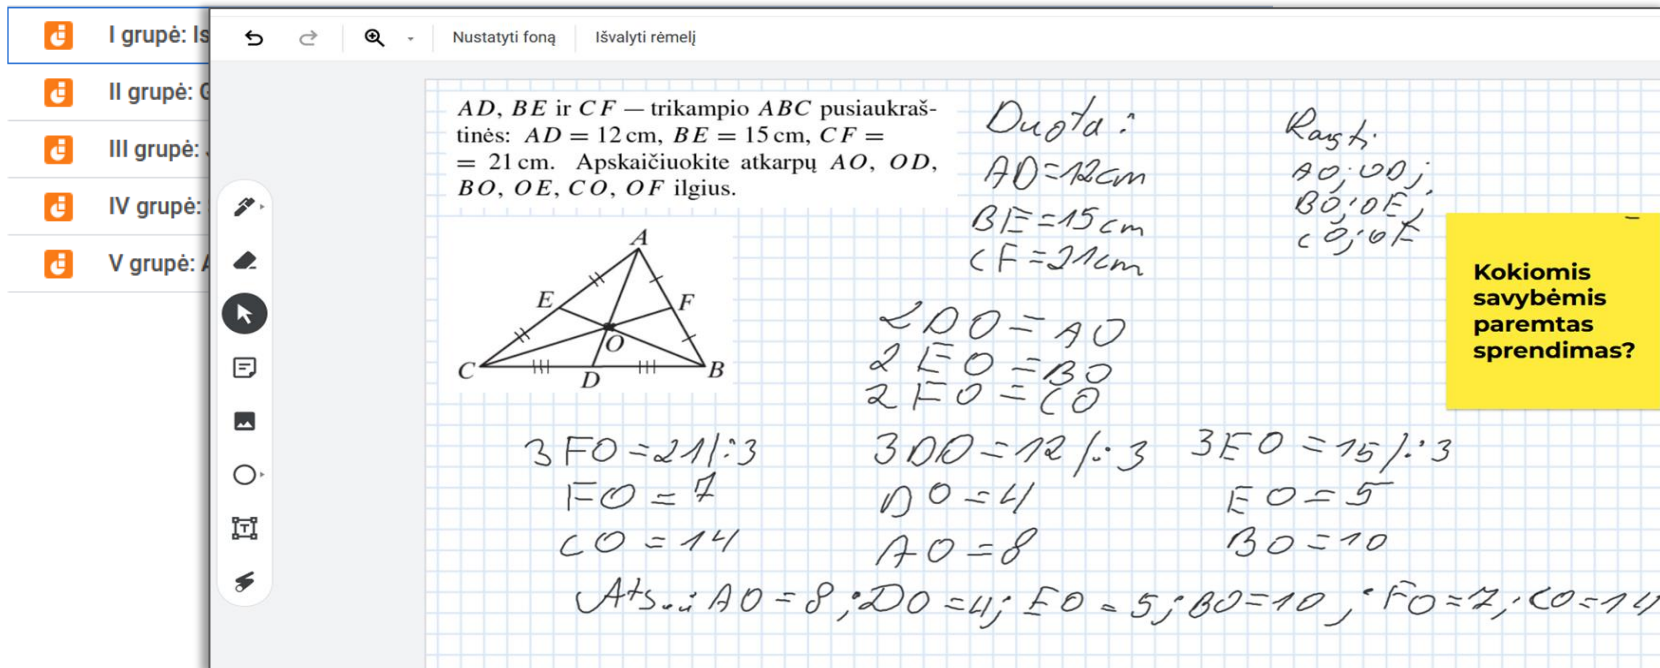 I grupė: Is
II grupė: G
III grupė:
IV grupė:
V grupė: A
Nustatyti foną
Išvalyti rėmelį
AD, BE ir CF — trikampio ABC pusiaukraš-
tinės: AD = 12 cm, BE = 15 cm, CF =
= 21 cm. Apskaičiuokite atkarpų AO, OD,
BO, OE, CO, OF ilgius.
A
E
F
O
C
D
B
Duota:
AD=12cm
BE=15cm
CF=21cm
Rasti:
AO; OD;
BO; OE;
CO; OF
Kokiomis
savybėmis
paremtas
sprendimas?
2DO=AO
2EO=BO
2FO=CO
3FO=21/:3
FO=7
CO=14
3DO=12/:3
DO=4
AO=8
3EO=15/:3
EO=5
BO=10
Ats.: AO=8; DO=4; EO=5; BO=10; FO=7; CO=14